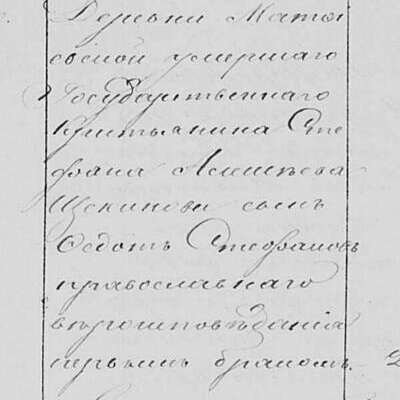 Деревни Матвѣ
евской умершаго
Государственнаго
Крестьянина Сте
фана Алексѣева
Щекинова сынъ
Ѳедотъ Стефановъ
православнаго
вѣроисповѣданія
первымъ бракомъ.